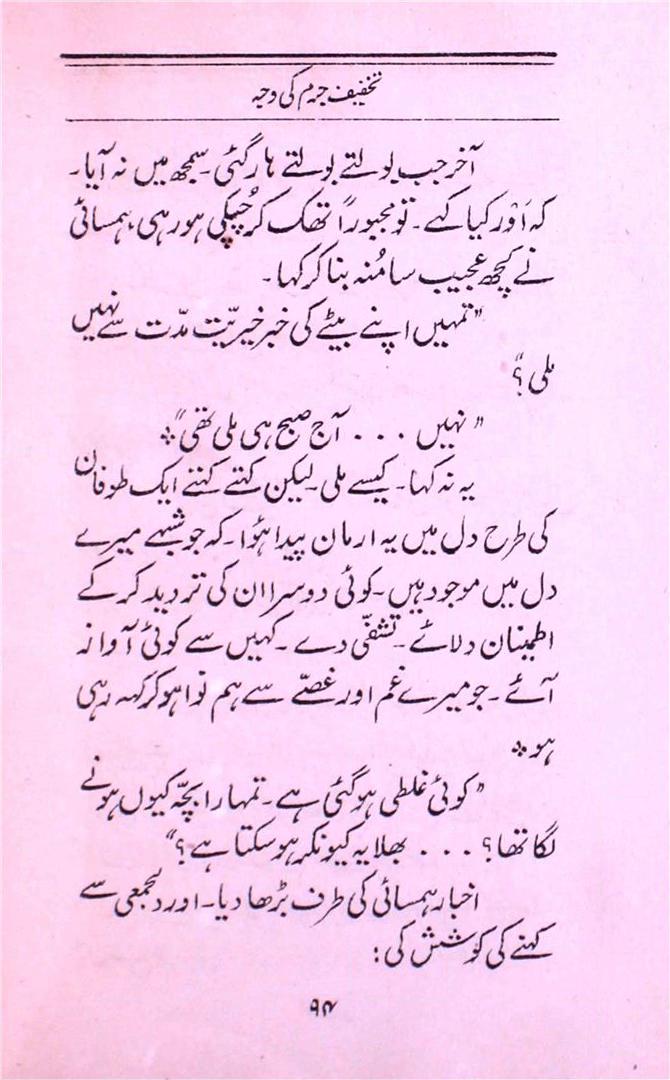 تخفیف جرم کی وجہ
آخر جب بولتے بولتے ہار گئی۔ سمجھ میں نہ آیا۔
کہ اَوْر کیا کہے۔ تو مجبوراً تھک کر چُپکی ہو رہی، ہمسائی
نے کچھ عجیب سا مُنہ بنا کر کہا۔
”تمہیں اپنے بیٹے کی خبر خیریّت مدّت سے نہیں
ملی؟“
”نہیں ... آج صبح ہی ملی تھی“؞
یہ نہ کہا۔ کیسے ملی۔ لیکن کہتے کہتے ایک طوفان
کی طرح دل میں یہ ارمان پیدا ہؤا۔ کہ جو شبہے میرے
دل میں موجود ہیں۔ کوئی دوسرا ان کی تردید کر کے
اطمینان دلائے۔ تشفّی دے۔ کہیں سے کوئی آواز
آئے۔ جو میرے غم اور غصّے سے ہم نوا ہو کر کہہ رہی
ہو؞
”کوئی غلطی ہو گئی ہے۔ تمہارا بچّہ کیوں ہونے
لگا تھا؟ ... بھلا یہ کیونکر ہو سکتا ہے؟“
اخبار ہمسائی کی طرف بڑھا دیا۔ اور دلجمعی سے
کہنے کی کوشش کی:
۹۴